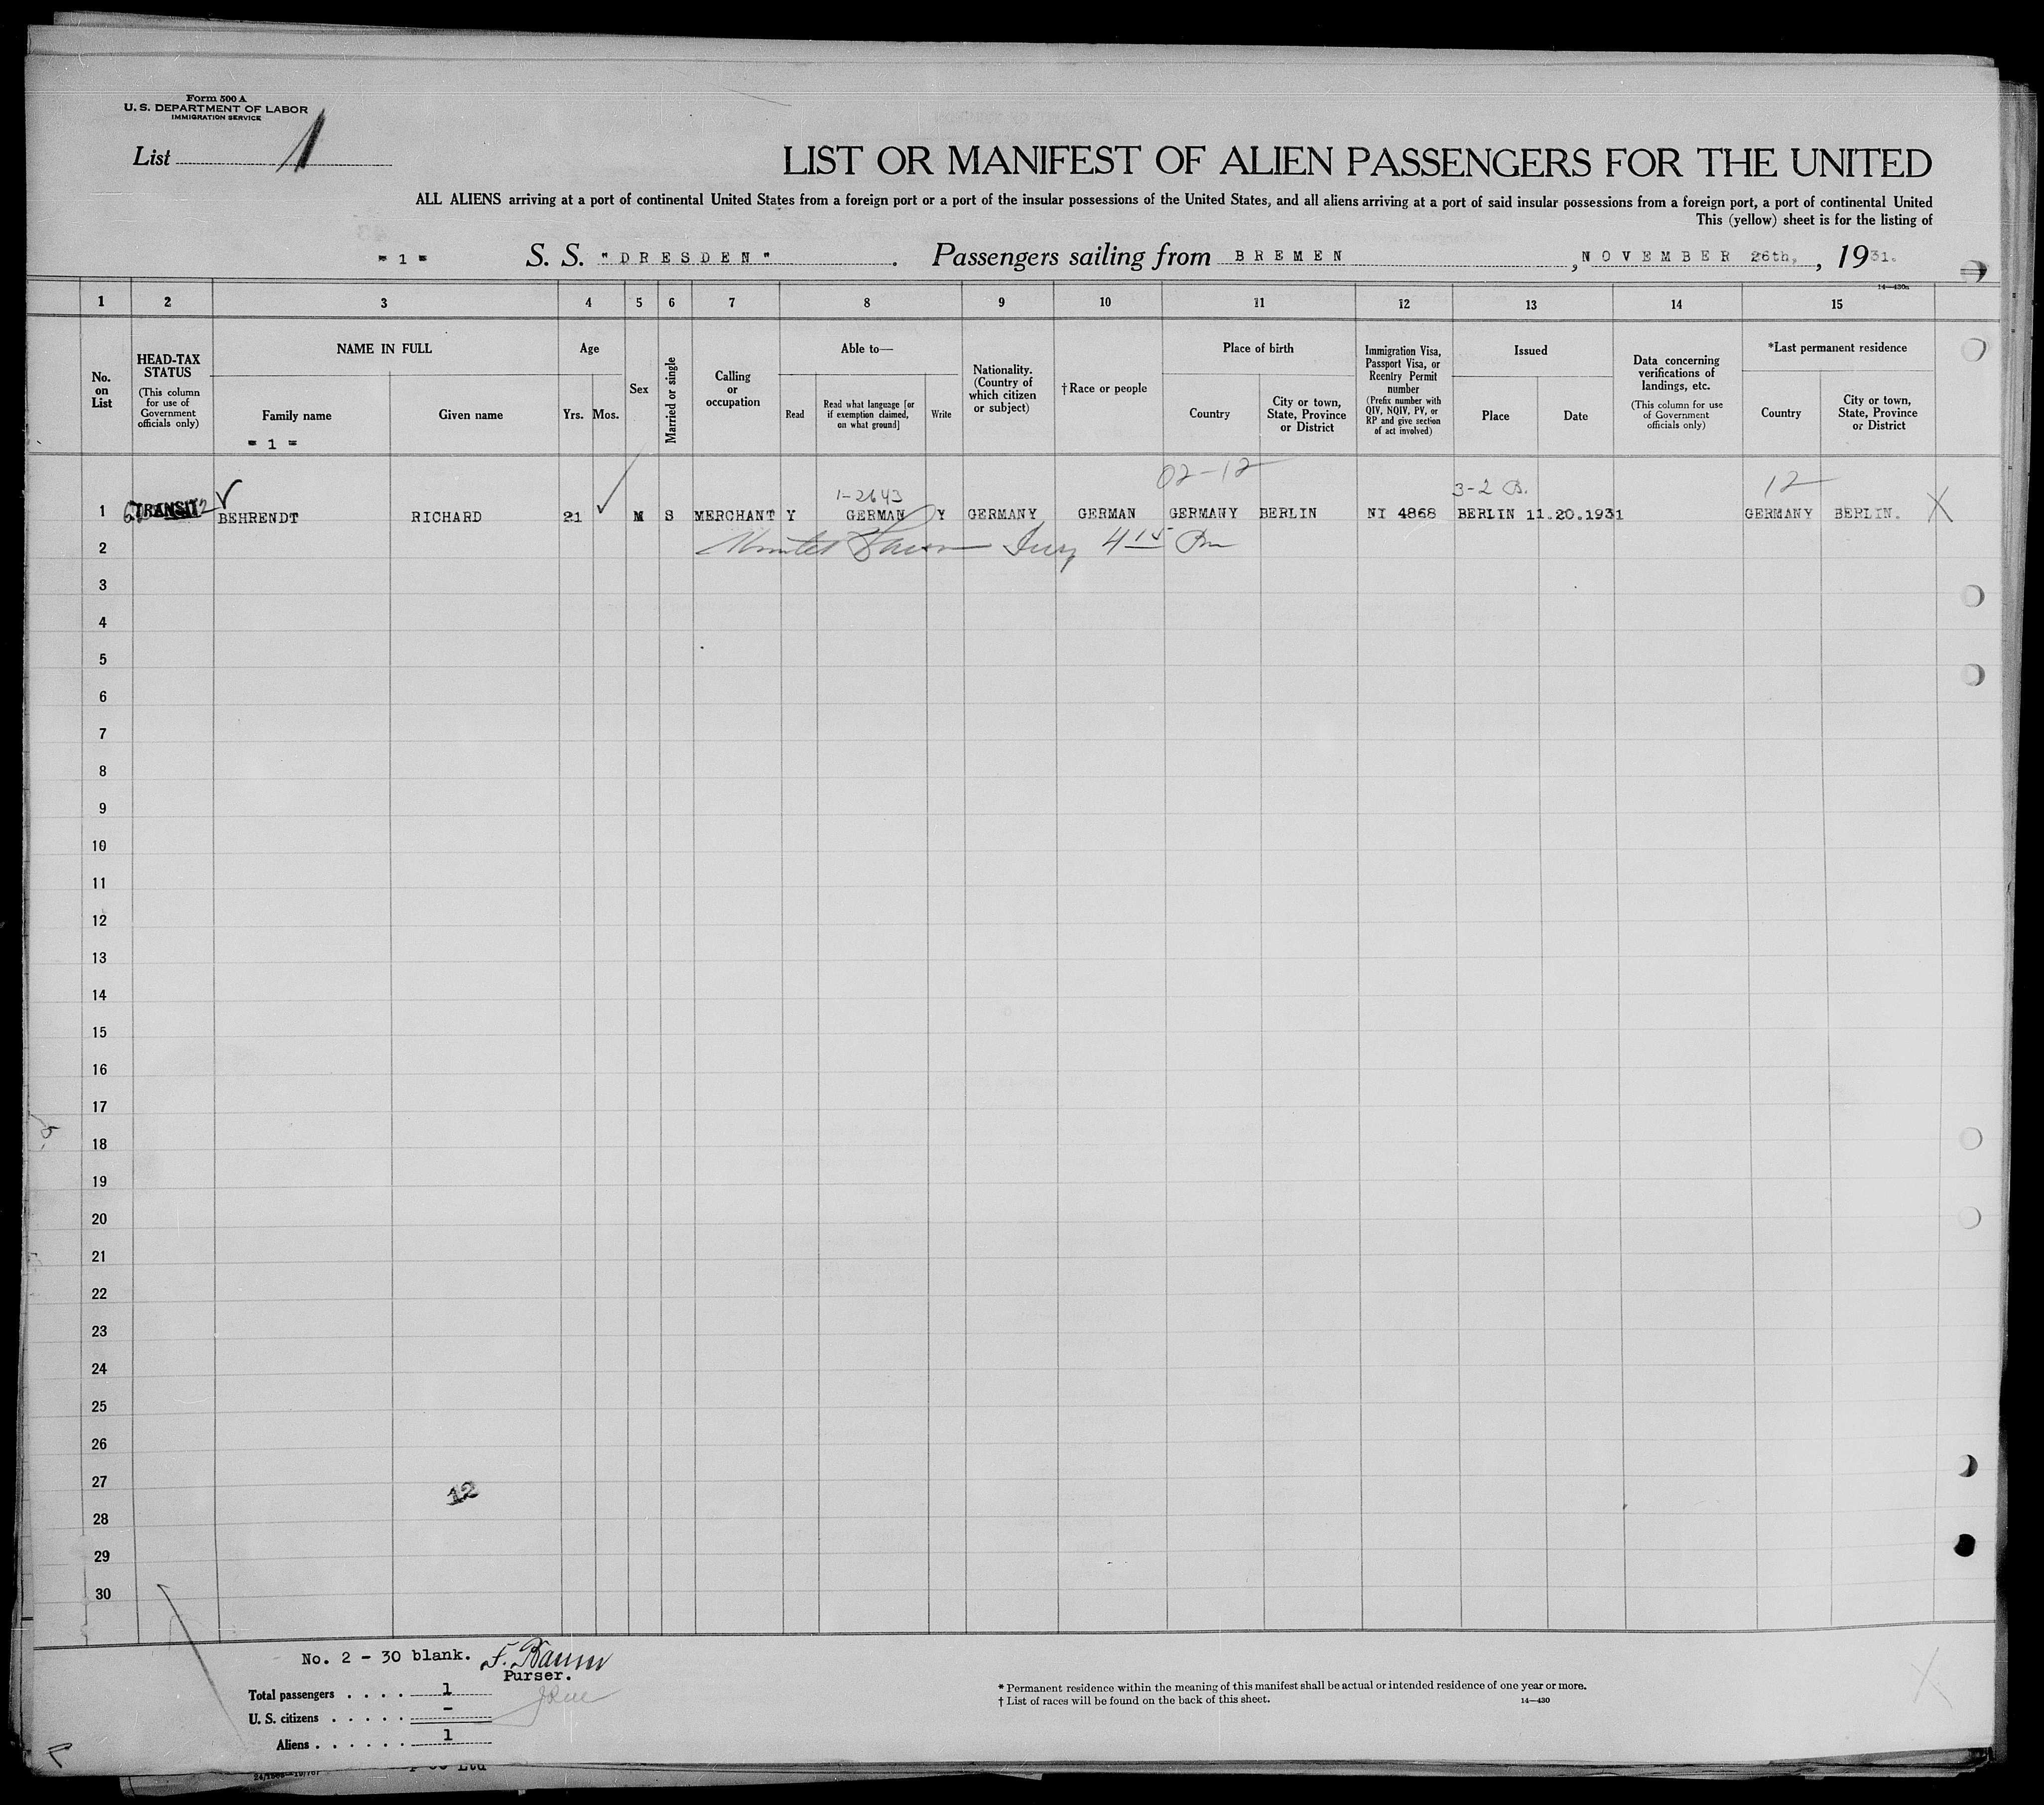 Form 500 A
U. S. DEPARTMENT OF LABOR
IMMIGRATION SERVICE
List 1
LIST OR MANIFEST OF ALIEN PASSENGERS FOR THE UNITED
ALL ALIENS arriving at a port of continental United States from a foreign port or a port of the insular possessions of the United States, and all aliens arriving at a port of said insular possessions from a foreign port, a port of continental United
This (yellow) sheet is for the listing of
= 1 = S. S. "DRESDEN". Passengers sailing from BREMEN, NOVEMBER 26th, , 1931.
14—430a
1 2 3 4 5 6 7 8 9 10 11 12 13 14 15
No. on List
HEAD-TAX STATUS
(This column for use of Government officials only)
NAME IN FULL
Family name
= 1 =
Given name
Age
Yrs. Mos.
Sex
Married or single
Calling or occupation
Able to—
Read
Read what language [or if exemption claimed, on what ground]
Write
Nationality. (Country of which citizen or subject)
†Race or people
Place of birth
Country
City or town, State, Province or District
Immigration Visa, Passport Visa, or Reentry Permit number
(Prefix number with QIV, NQIV, PV, or RP and give section of act involved)
Issued
Place
Date
Data concerning verifications of landings, etc.
(This column for use of Government officials only)
*Last permanent residence
Country
City or town, State, Province or District
02-12
1-2643 3-2 B. 12
1 TRANSIT BEHRENDT RICHARD 21 M S MERCHANT Y GERMAN Y GERMANY GERMAN GERMANY BERLIN NI 4868 BERLIN 11.20.1931 GERMANY BERLIN. X
2 4 15 Pm
3
4
5
6
7
8
9
10
11
12
13
14
15
16
17
18
19
20
21
22
23
24
25
26
27
12
28
29
30
No. 2 - 30 blank. F. Baum
Purser.
Total passengers . . . . 1
U. S. citizens . . . . . -
Aliens . . . . . . 1
* Permanent residence within the meaning of this manifest shall be actual or intended residence of one year or more.
† List of races will be found on the back of this sheet. 14—430